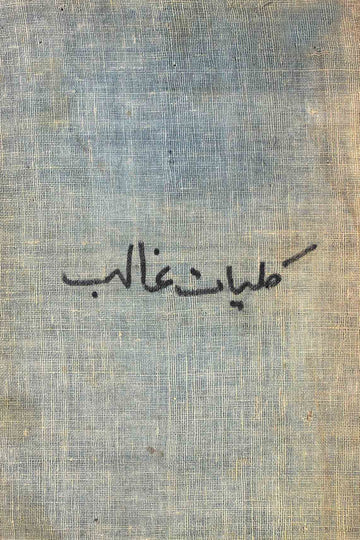 کلیات غالب